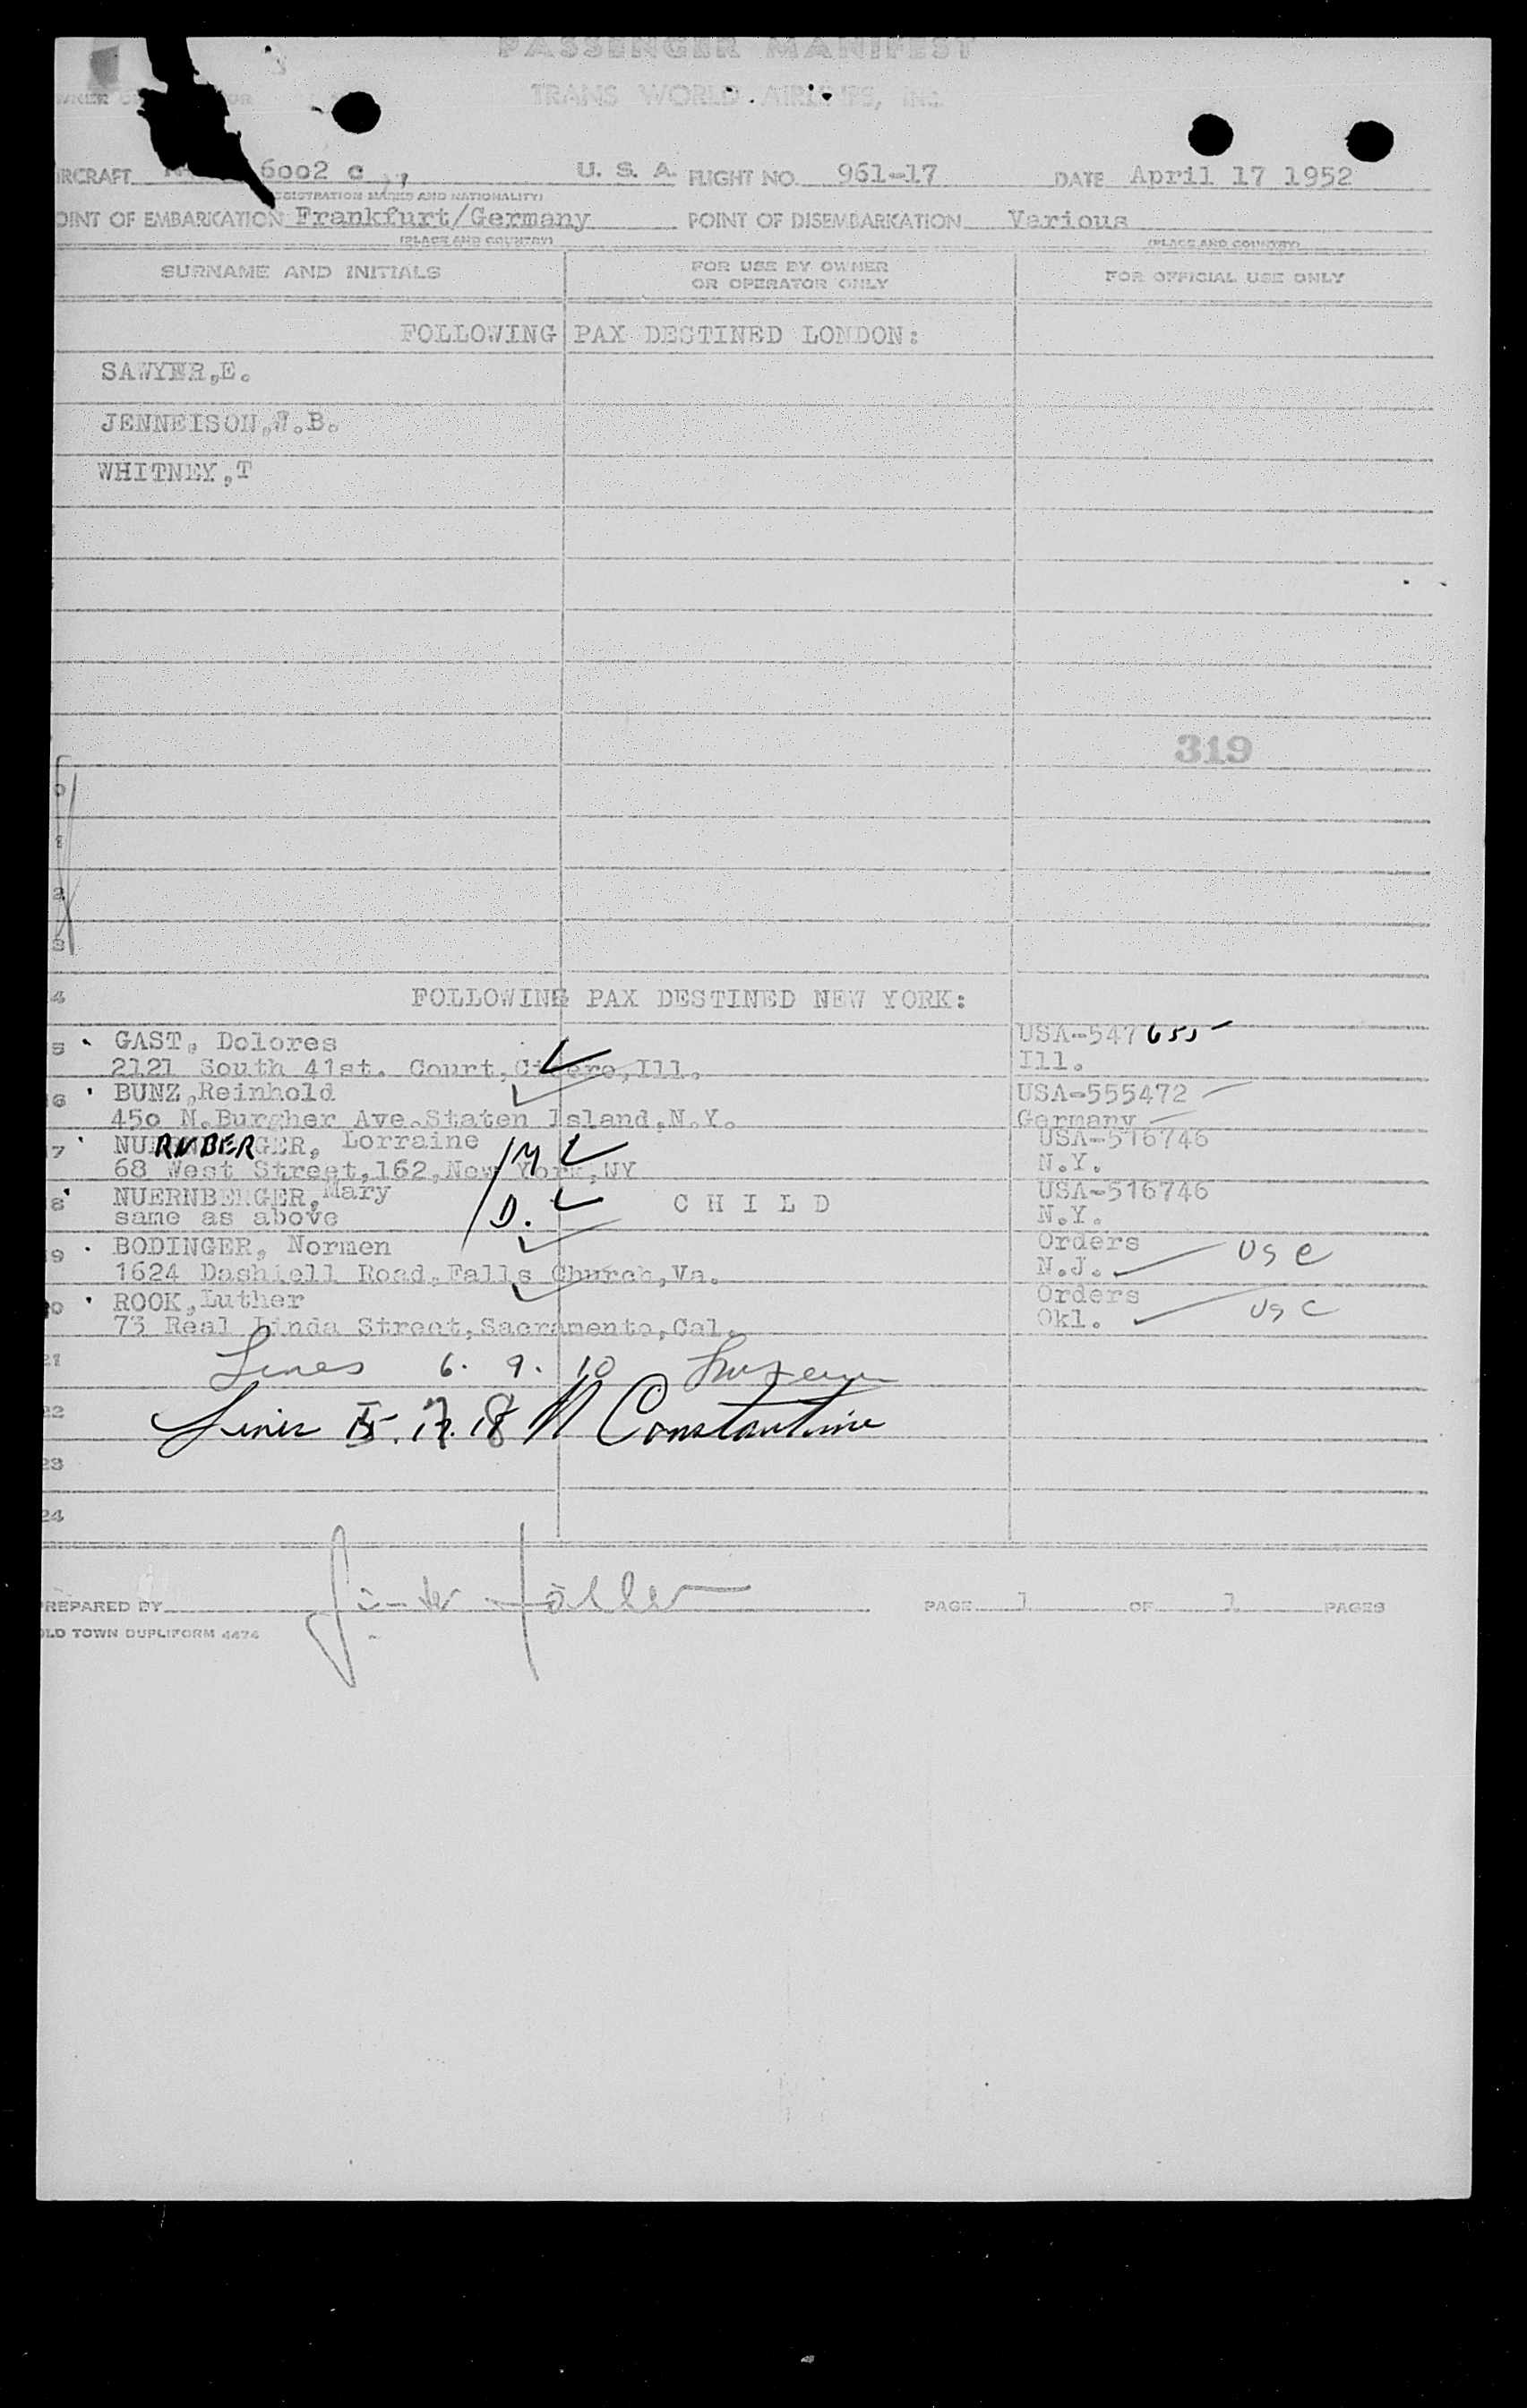 PASSENGER MANIFEST
TRANS WORLD AIRLINES, INC.
IRCRAFT 6002 c U. S. A. FLIGHT NO. 961-17 DATE April 17 1952
(REGISTRATION MARKS AND NATIONALITY)
OINT OF EMBARKATION Frankfurt/Germany POINT OF DISEMBARKATION Various
(PLACE AND COUNTRY) (PLACE AND COUNTRY)
SURNAME AND INITIALS FOR USE BY OWNER OR OPERATOR ONLY FOR OFFICIAL USE ONLY
FOLLOWING PAX DESTINED LONDON:
SAWYER,E.
JENNEISON,W.B.
WHITNEY,T
319
0
1
2
3
4 FOLLOWING PAX DESTINED NEW YORK:
5 GAST, Dolores USA-547655
2121 South 41st. Court,Cicero,Ill. Ill.
6 BUNZ,Reinhold USA-555472
450 N.Burgher Ave.Staten Island.N.Y. Germany
7 NURNBERGER, Lorraine M USA-516746
68 West Street,162,New York,NY N.Y.
8 NUERNBERGER,Mary D. C H I L D USA-516746
same as above N.Y.
9 BODINGER, Normen Orders
1624 Dashiell Road,Falls Church,Va. N.J. USC
0 ROOK,Luther Orders
73 Real Linda Street,Sacramento,Cal. Okl. USC
21 Lines 6. 9. 10
22 Lines 15. 17. 18 N Constantine
23
24
PREPARED BY PAGE 1 OF 1 PAGES
OLD TOWN DUPLIFORM 4474